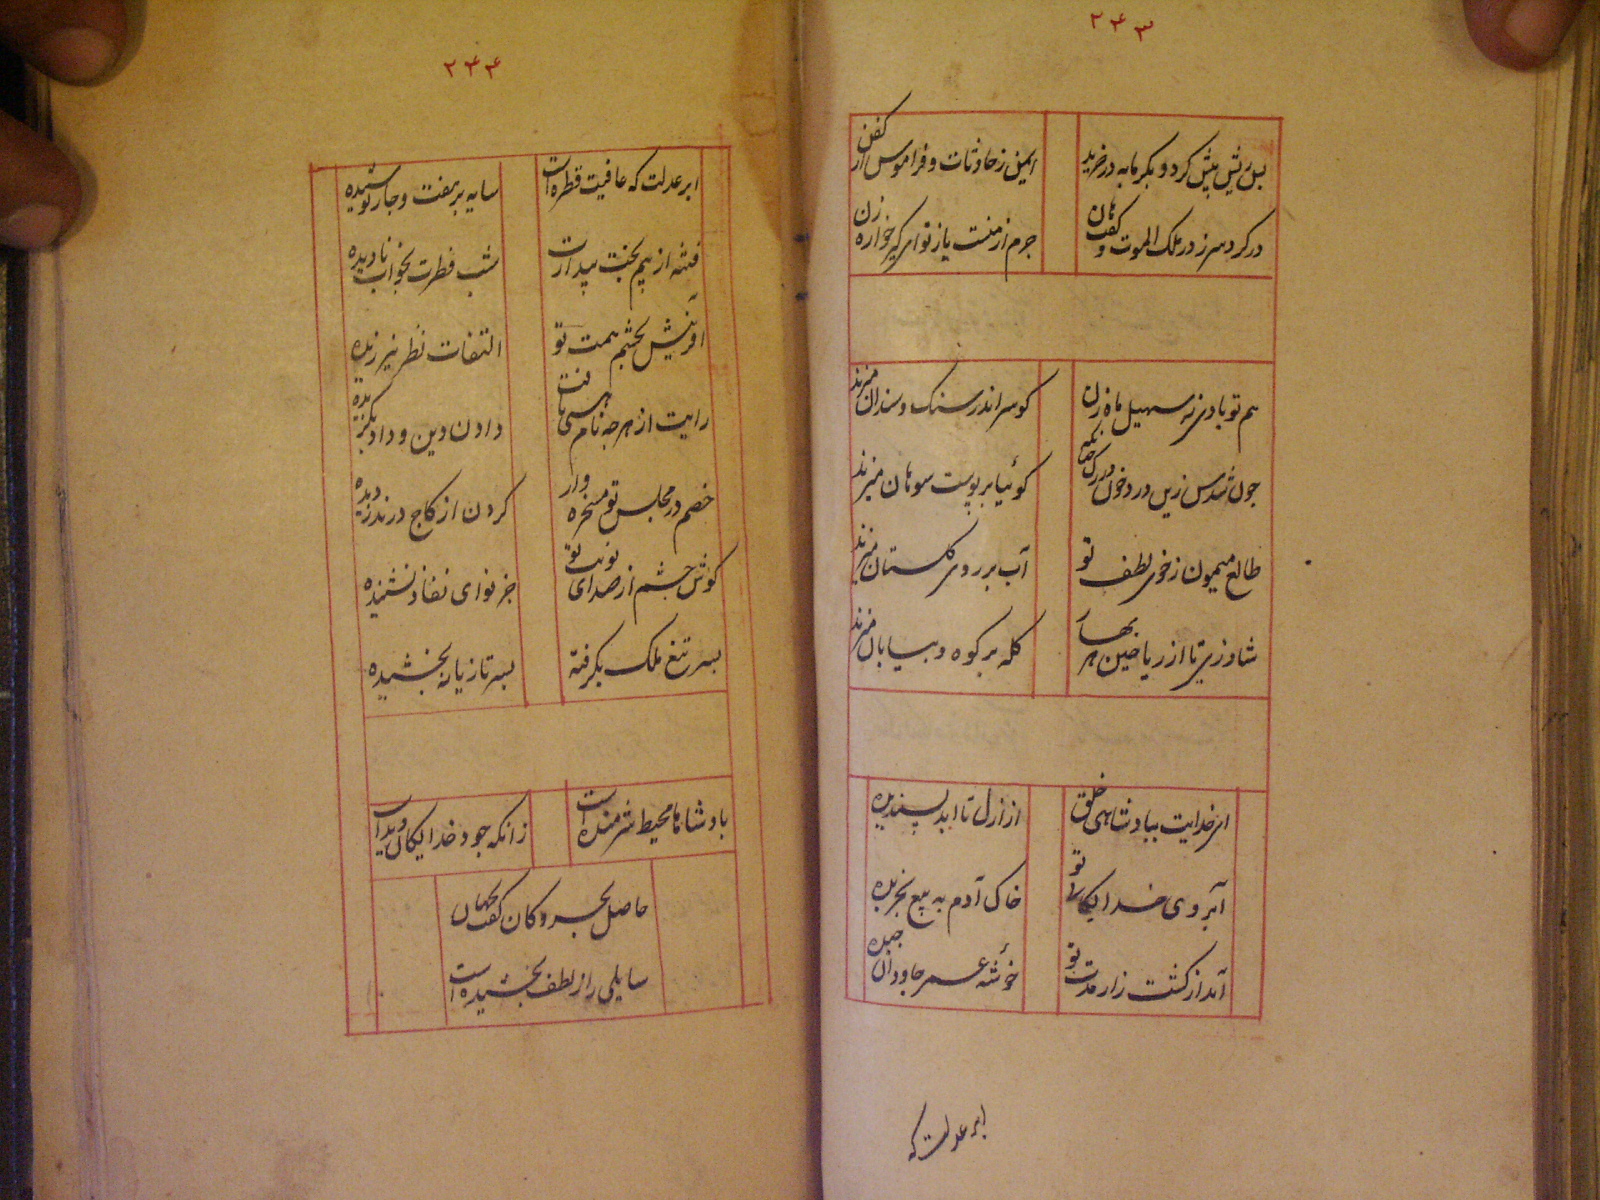 ۲۴۳
بس ریش بیش کرد و بکرمابه در خزید ایمن ز حادثات و فراموس از کفن
در کرد سر ز در ملک الموت و کفت هان جرم از منست یا ز تو ای کیر خواره زن
هم تو بادی نه سهیل ماه زن کو سر اندر سنک و سندان میزند
جون شدس زین در دخون در کوئیا بر پوست سوهان میزند
طالع میمون ز خوی لطف تو آب بر روی کلستان میزند
شاد زی تا از ریاحین هر بهار کله بر کوه و بیابان میزند
ای خدایت ببادشاهی خلق از ازل تا ابد پسندیده
آبروی خدایکانی تو خاک آدم به بیع بخریده
آمد از کشت زار مدت تو خوشه عمر جاودان جیده
ابر عدلت که
۲۴۴
ابر عدلت که عافیت قطره است سایه بر هفت و جار پوشیده
فتنه از بیم بخت بیدارت شب فطرت بخواب نادیده
آفرینش بجشم همت تو التفات نظر نیرزیده
رایت از هرجه نام هستی یافت دادن دین و داد بکزیده
خصم در مجلس تو مسخره وار کردن از کاج در ندزدیده
کوش جشم از صدای نوبت تو جز نوای نفاذ نشنیده
بسر تیغ ملک بکرفته بسر تازیانه بخشیده
بادشاها محیط شرمنده است زانکه جود خدایکان دیده است
حاصل بحر و کان کفت جهان
سایلی را ز لطف بخشیده است